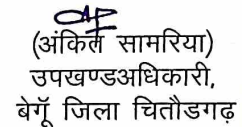 (अंकित सामरिया)
उपखण्डअधिकारी,
बेगूॅ जिला चितौडगढ़